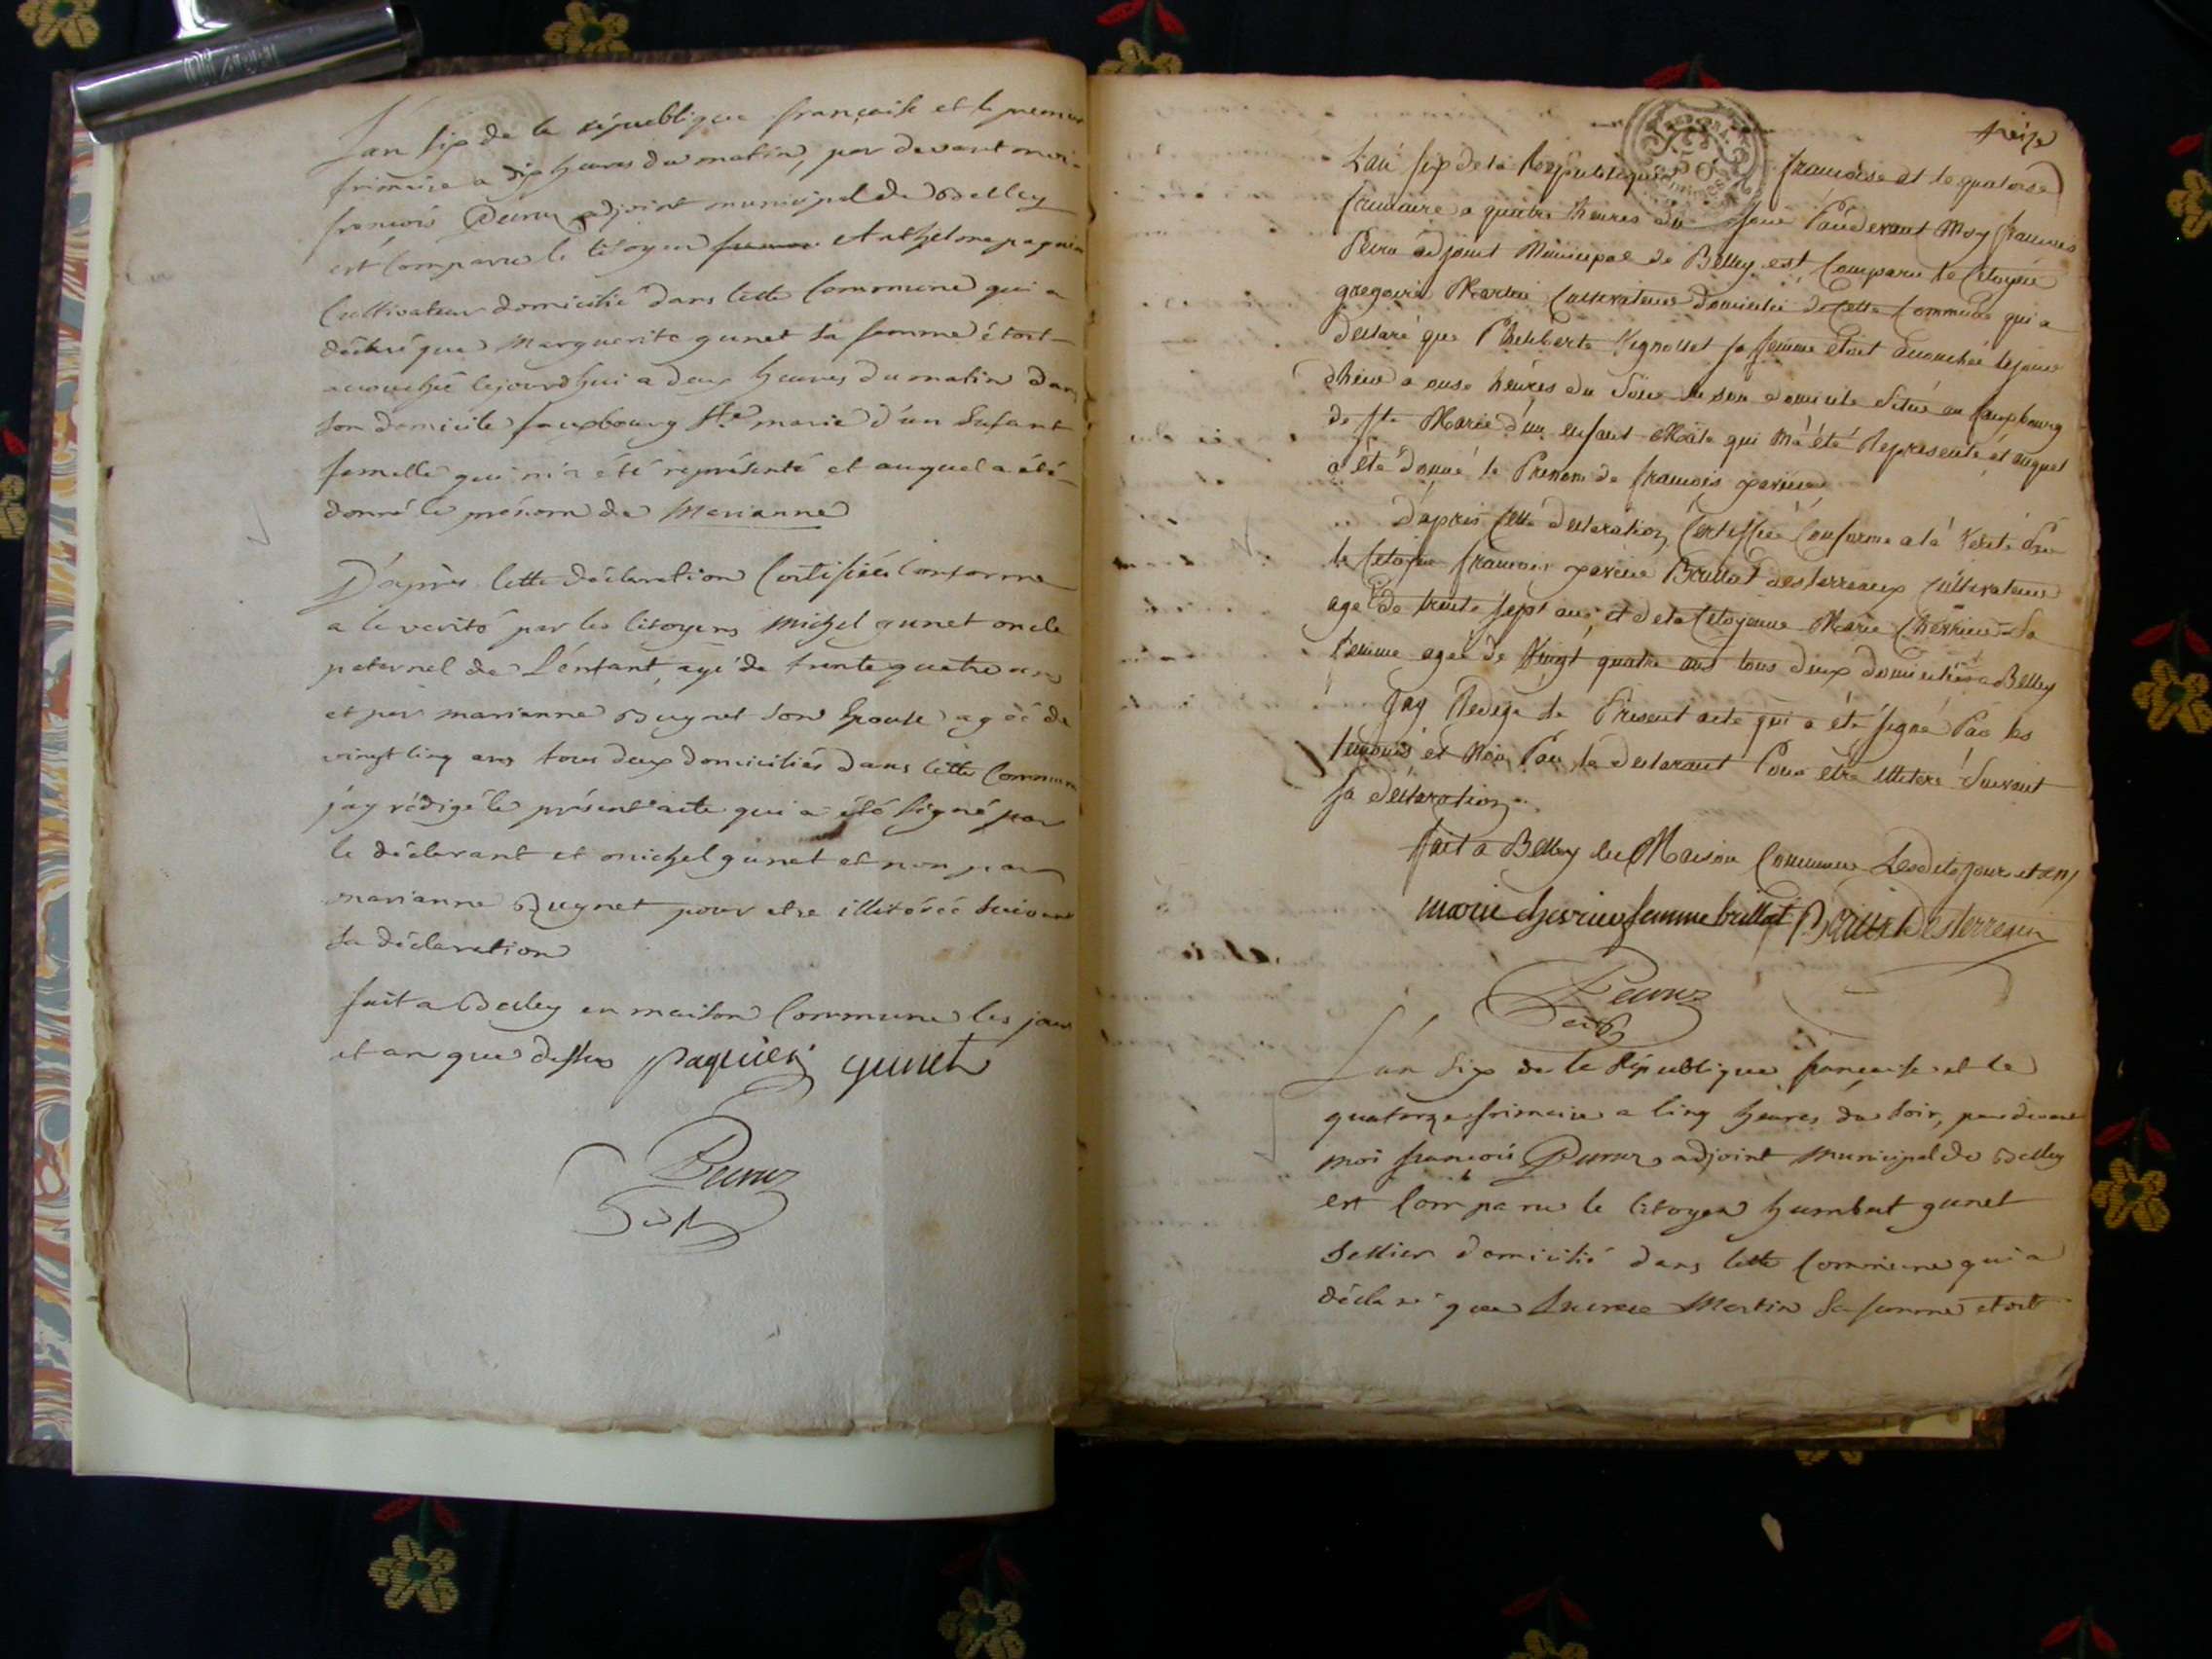 L'an six de la république française et le premier
frimaire a dix heures du matin, par devant moi
françois Peiruz adjoint municipal de Belley
est comparu le citoyen Anthelme paquien
Cultivateur domicilié dans cette Commune qui a
déclaré que Marguerite gunet sa femme étoit
accouchée cejourdhui a deux heures du matin dans
son domicile fauxbourg Ste marie d'un Enfant
femelle qui m'a été représenté et auquel a été
donné le prénom de Marianne
D'après cette déclaration Certifiée Conforme
a la verité par les citoyens Michel gunet oncle
paternel de L'enfant, agé de trente quatre ans
et par marianne Bugnet son Epouse agée de
vingt cinq ans tous deux domiciliés dans cette Commune
j'ay rédigé le présent acte qui a été signé par
le déclarant et michel gunet et non par
marianne Bugnet pour etre illitérée suivant
sa déclaration
fait a Belley en maison Commune les jour
et an que dessus paquien gunet
Peiruz
adjt
treize
L'an six de la Republique francoise et le quatorse
frimaire a quatre heures du soir Pardevant Moy francois
Peiru adjoint Municipal de Belley est Comparu le Citoyen
gregoire Martin Cultivateur domicilié de Cette Commune qui a
declaré que Philiberte Vignollet sa femme etoit accouchée le jour
dhier a onse heures du Soir en son domicile situé au fauxbourg
de Ste Marie d'un enfant Male qui m'a été Representé et auquel
a été donné le Prenom de francois xavier
d'après Cette declaration Certiffiée Conforme a la Verité Par
le Citoyen francois xavier Brillat desterreaux Cultivateur
agé de trente sept ans, et de la Citoyenne Marie Chevrier sa
femme agée de Vingt quatre ans tous deux domiciliés a Belley
J'ay Redigé le Present acte qui a été signé Par les
temoins et Non Par le declarant Pour etre illiteré suivant
sa declaration
fait a Belley en Maison Commune Lesdits jour et an
marie chevrier femme brillat Brillat Desterreaux
Peiruz
adjt
L'an six de la République française et le
quatorze frimaire a cinq heures du soir, par devant
moi françois Peiruz adjoint municipal de Belley
est Comparu le citoyen humbert gunet
Sellier domicilié dans cette Commune qui a
déclaré que Martin sa femme etoit